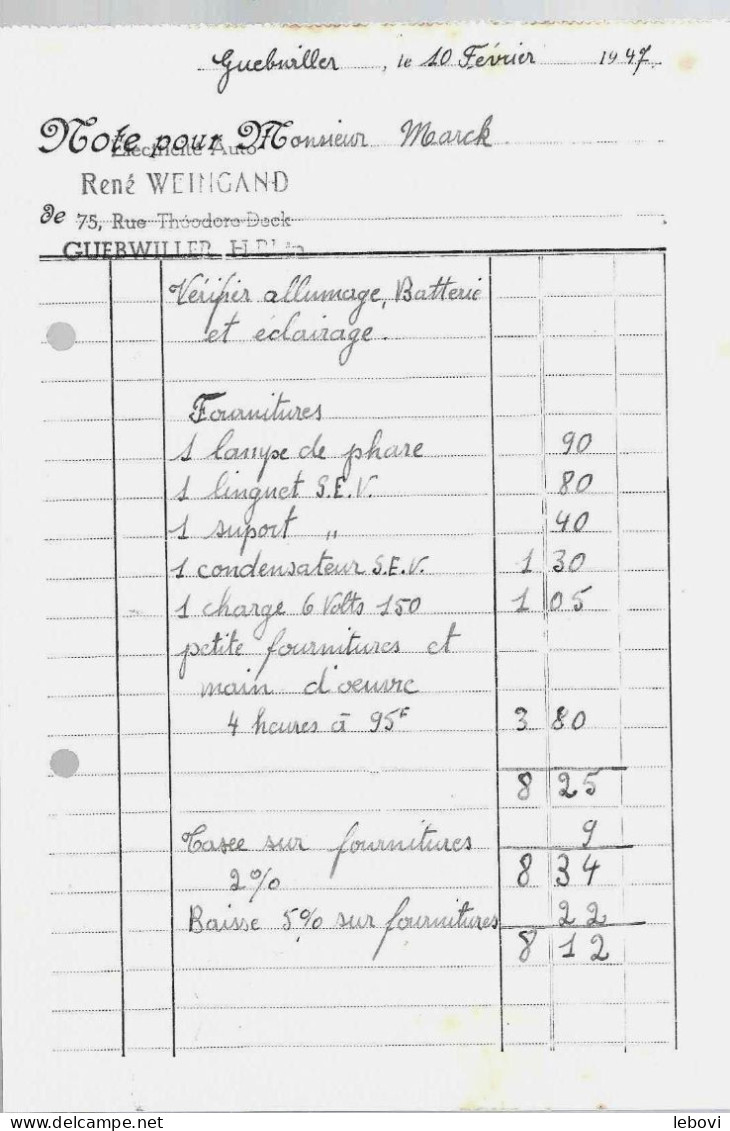 Guebwiller, le 10 Février 1947.
Note pour Monsieur Marck
Electricité Auto
René WEINGAND
de 75, Rue Théodore Deck
GUEBWILLER
Vérifier allumage, Batterie
et éclairage.
Fournitures
1 lampe de phare 90
1 linguet S.E.V. 80
1 suport " 40
1 condensateur S.E.V. 1 30
1 charge 6 Volts 150 1 05
petite fournitures et
main d'oeuvre
4 heures à 95F 3 80
8 25
Taxe sur fournitures 9
2% 8 34
Baisse 5% sur fournitures 22
8 12
lebovi